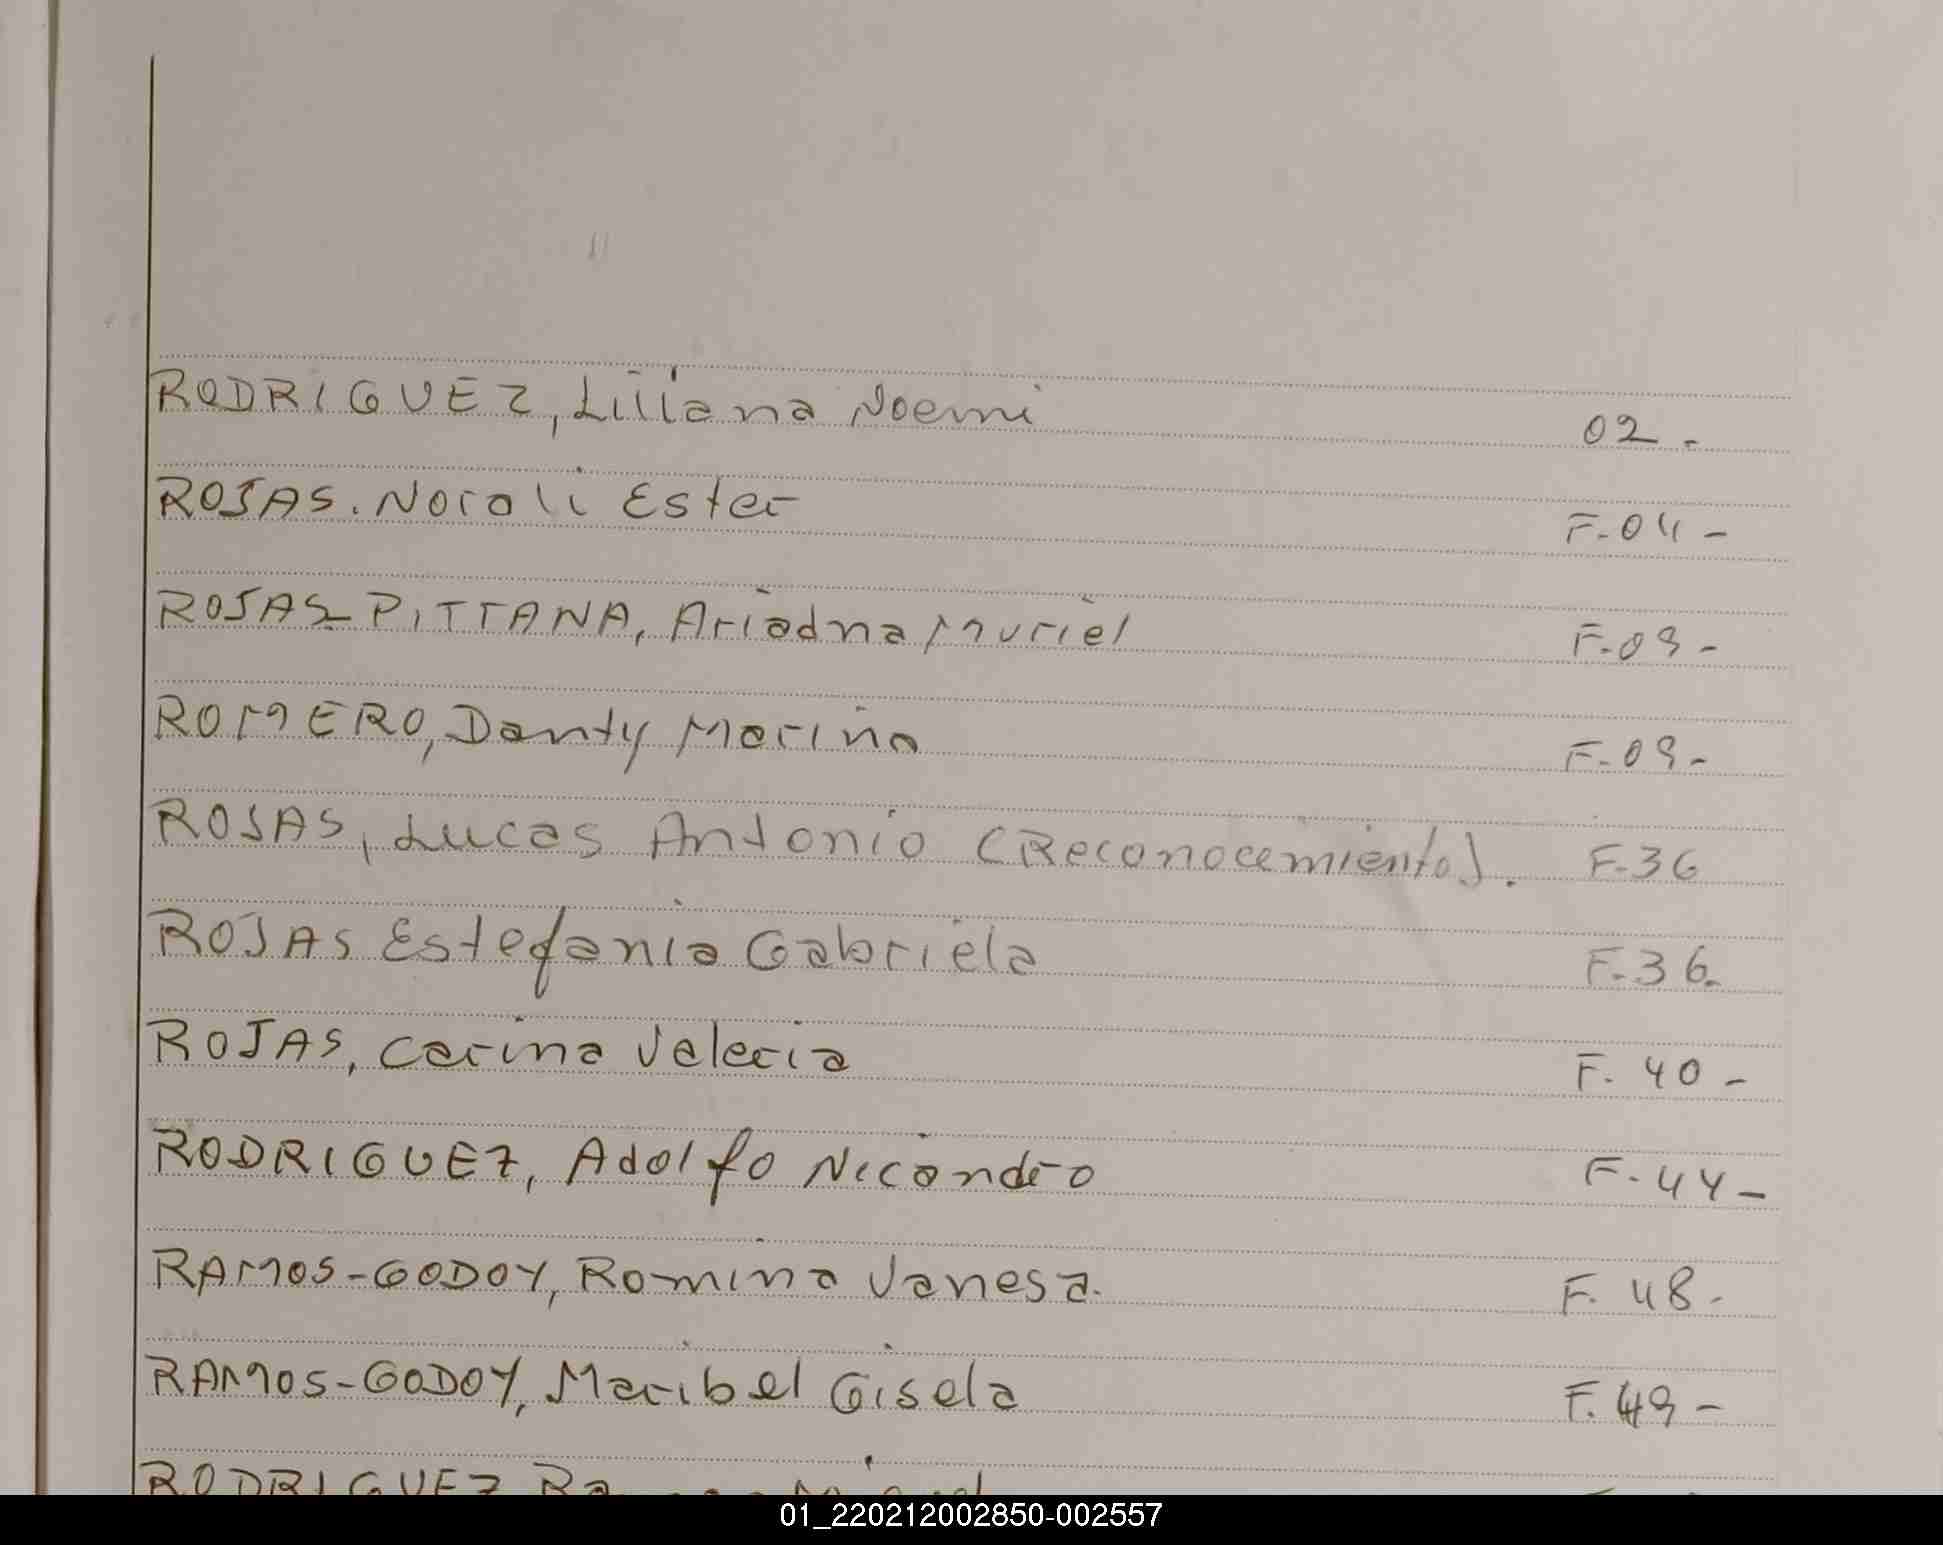 RODRIGUEZ, Liliana Noemi 02.-
ROJAS. Norali Ester F.04-
ROJAS PITTANA, Ariadna Muriel F.09-
ROMERO, Danty Marina F.09-
ROJAS, Lucas Antonio (Reconocemiento). F.36
ROJAS Estefania Gabriela F.36.
ROJAS, Carina Valeria F. 40-
RODRIGUEZ, Adolfo Nicandro F.44-
RAMOS-GODOY, Romina Vanesa. F. 48-
RAMOS-GODOY, Maribel Gisela F. 49-
RODRIGUEZ
01_220212002850-002557